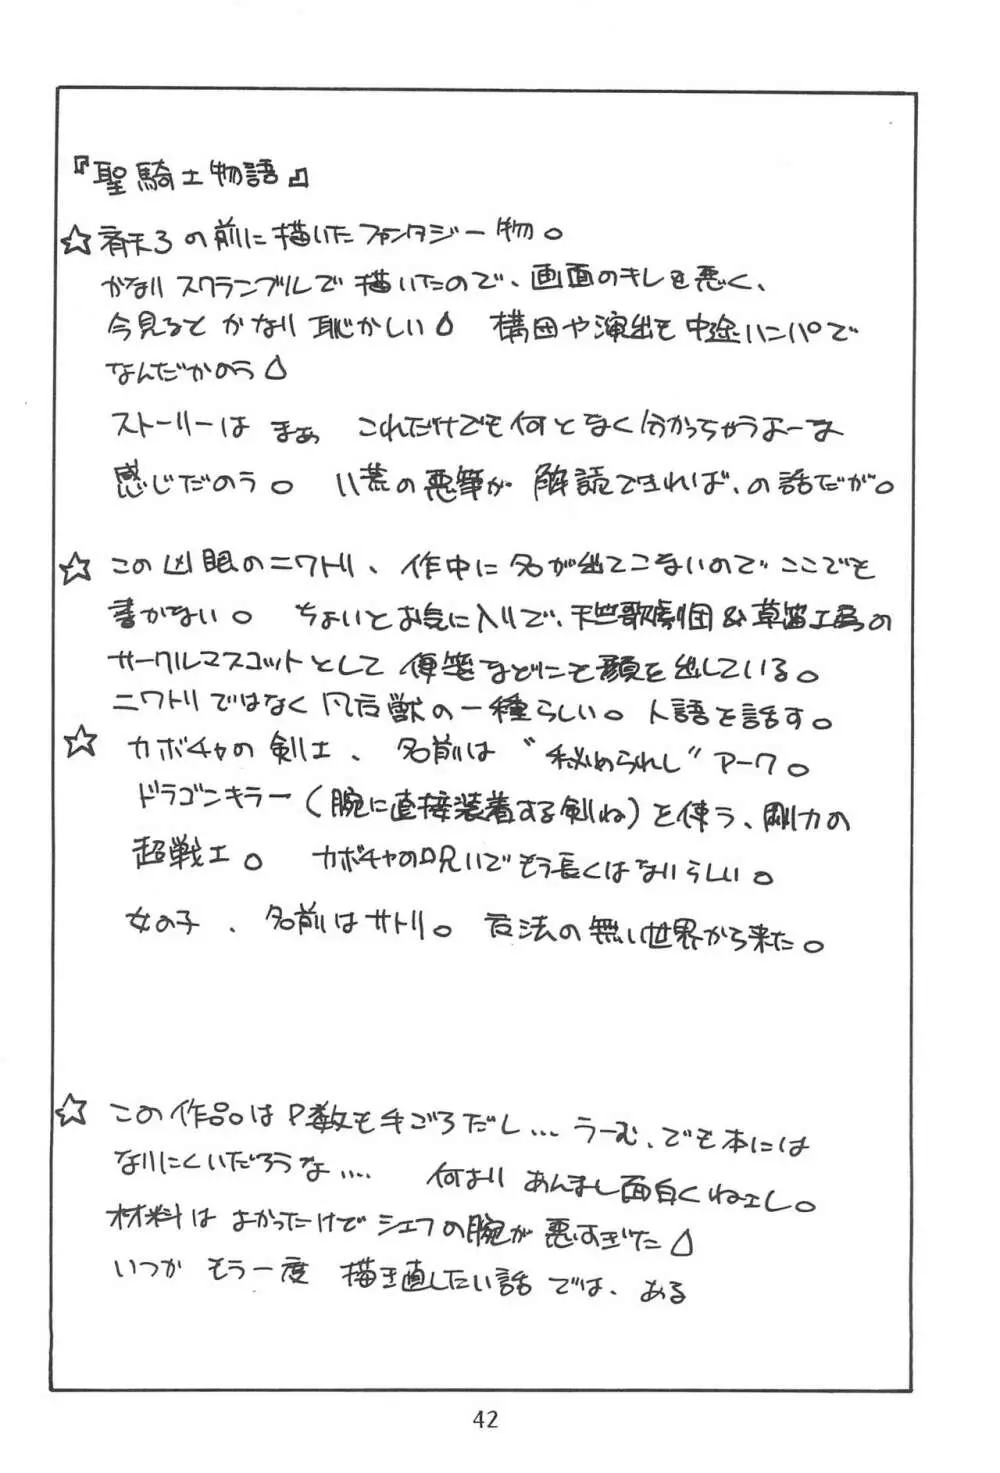 『聖騎士物語』
☆斉天3の前に描いたファンタジー物。
かなりスクランブルで描いたので、画面のキレも悪く、
今見るとかなり恥かしい 構図や演出も中途ハンパで
なんだかのう
ストーリーは まぁ これだけでも何となく分かっちゃうよーな
感じだのう。 八荒の悪筆が 解読できれば、の話だが。
☆この凶眼のニワトリ、作中に名が出てこないので ここでも
書かない。 ちょいとお気に入りで、天竺歌劇団&草笛工房の
サークルマスコットとして 便箋などにも顔を出している。
ニワトリではなく 魔獣の一種らしい。人語を話す。
☆カボチャの剣士、 名前は "秘められし" アーク。
ドラゴンキラー(腕に直接装着する剣ね)を使う、剛力の
超戦士。 カボチャの呪いで もう長くはないらしい。
女の子、 名前はサトリ。 魔法の無い世界から来た。
☆この作品はP数も手ごろだし… うーむ、でも本には
なりにくいだろうな…. 何より あんまし面白くねェし。
材料は よかったけどシェフの腕が悪すぎた
いつか もう一度 描き直したい話 では、ある
42